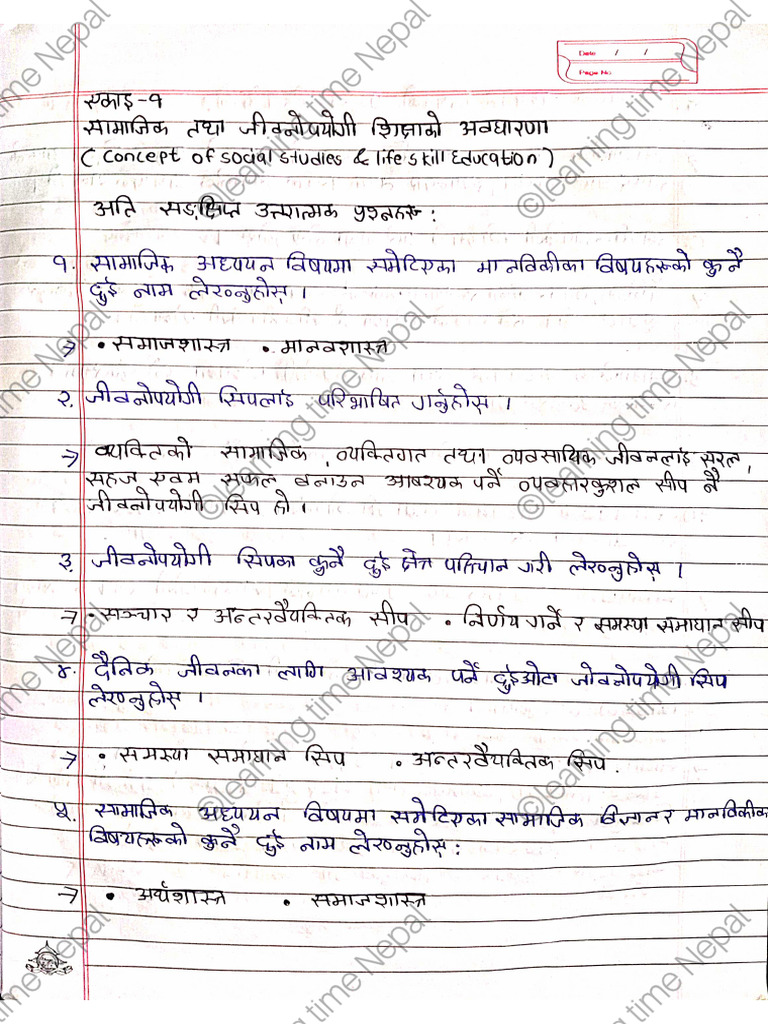 Date / /
Page No.
एकाइ-१
सामाजिक तथा जीवनोपयोगी शिक्षाको अवधारणा
( Concept of social studies & life skill Education )
अति सङ्क्षिप्त उत्तरात्मक प्रश्नहरू :
१. सामाजिक अध्ययन विषयमा समेटिएका मानविकीका विषयहरूको कुनै
दुई नाम लेख्नुहोस् ।
→ • समाजशास्त्र • मानवशास्त्र
२. जीवनोपयोगी सिपलाई परिभाषित गर्नुहोस् ।
→ व्यक्तिको सामाजिक, व्यक्तिगत तथा व्यवसायिक जीवनलाई सरल,
सहज एवम सफल बनाउन आवश्यक पर्ने व्यवहारकुशल सीप नै
जीवनोपयोगी सिप हो ।
३. जीवनोपयोगी सिपका कुनै दुई क्षेत्र पहिचान गरी लेख्नुहोस् ।
→ • सञ्चार र अन्तरवैयक्तिक सीप • निर्णय गर्ने र समस्या समाधान सीप
४. दैनिक जीवनका लागि आवश्यक पर्ने दुईओटा जीवनोपयोगी सिप
लेख्नुहोस् ।
→ • समस्या समाधान सिप • अन्तरवैयक्तिक सिप.
५. सामाजिक अध्ययन विषयमा समेटिएका सामाजिक विज्ञान र मानविकीका
विषयहरूको कुनै दुई नाम लेख्नुहोस् :
→ • अर्थशास्त्र • समाजशास्त्र
©learning time Nepal